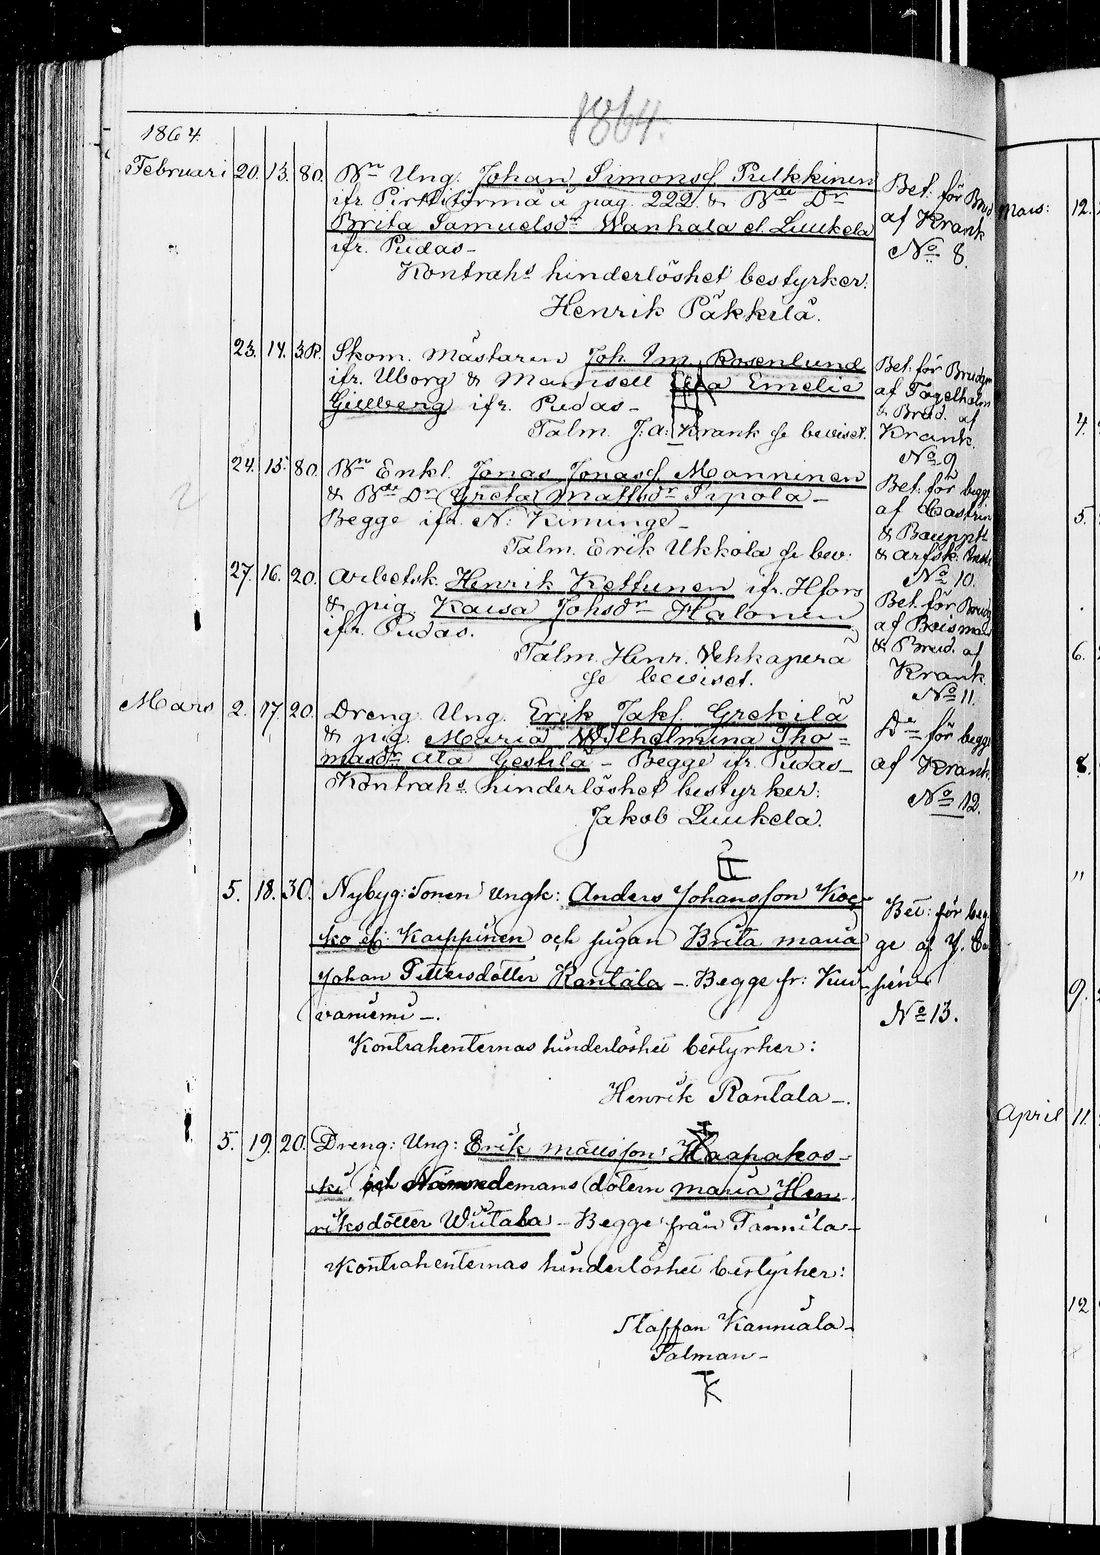 1864.
1864.
Februari 20. 13. 80. Bn Ung. Johan Simonsf. Pulkkinen
ifr. Pirttitörmä à pag. 222. & Bde Dr
Brita Samuelsdr Wanhala el. Luukela
ifr. Pudas_
Kontrahs hinderlöshet bestyrker:
Henrik Päkkilä.
Bet. för Brud
af Krank
No 8.
23. 14. 3R. Skom. Mästaren Joh. Im. Rosenlund
ifr. Uborg & Mamsell Emelie
Gillberg ifr. Pudas_
Talm. J: A: Krank se beviset.
Bet. för Brudgm
af Tagelhalm
& Brud. af
Krank.
No 9
24. 15. 80. Bn Enkl. Jonas Jonasf. Manninen
& Bde Dr Greta Mattsdr Sipola_
Begge ifr. N: Kiminge_
Talm. Erik Ukkola se bev:
Bet. för begg
af Castrén
&
& arfsk.
No 10.
27. 16. 20. Arbetsk. Henrik Kettunen ifr. Hfors
& pig. Kaisa Johsdr Halonen
ifr. Pudas.
Talm. Henr. Vehkaperä
se beviset.
Bet. för Brudg
af
& Brud. af
Krank
No 11.
Mars 2. 17. 20. Dreng. Ung. Erik Jakf. Grekilä
& pig. Maria Wilhelmina Tho=
masdr Ala Gestilä – Begge ifr. Pudas_
Kontrahs hinderlöshet bestyrker:
Jakob Luukela.
Do för begge
af Krank.
No 12.
5. 18. 30. Nybyg: Sonen Ungk: Anders Johansson Koc-
ko el: Karppinen och pigan Brita Maria
Johan Pettersdotter Rantala –. Begge fr: Kui-
vaniemi –.
Kontrahenternas hinderlöshet bestyrker:
Henrik Rantala –.
Bet: för beg-
ge af J.
pén –
No 13.
5. 19. 20. Dreng: Ung: Erik Mattsson Haapakos-
ki och Nämndemans dotern Maria Hen-
riksdotter Wiitala – Begge från Tannila –
Kontrahenternas hinderlöshet bestyrker:
Staffan Kanniala –
Talman –
Mars: 12.
4.
5.
6.
8.
"
9.
April 11.
12